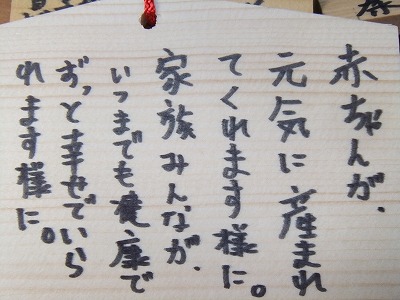 赤ちゃんが、
元気に産まれ
てくれます様に。
家族みんなが、
いつまでも健康で
ずっと幸せでいら
れます様に。